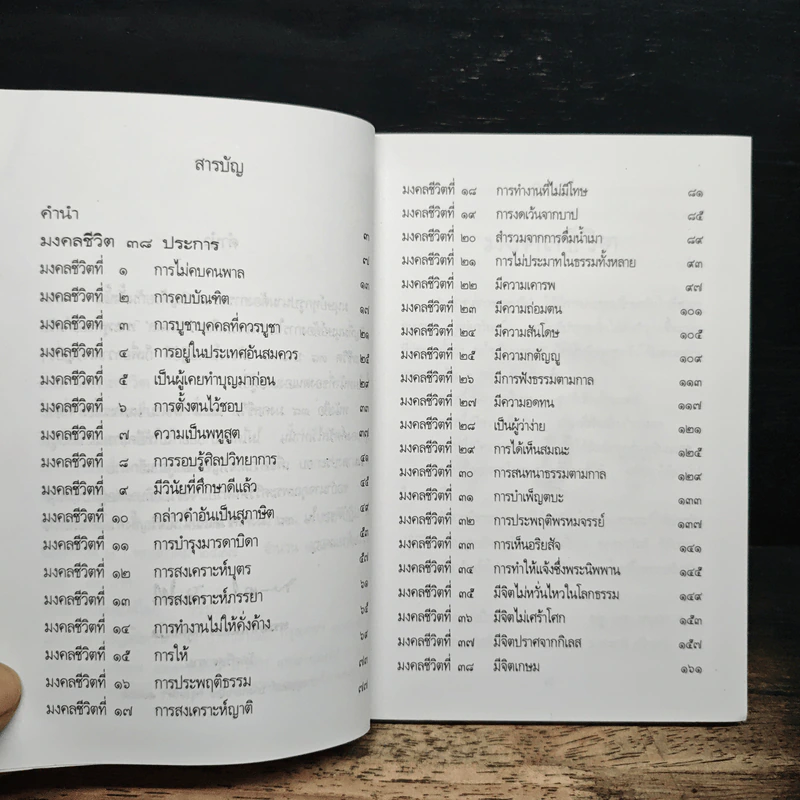 สารบัญ
คำนำ ๓
มงคลชีวิต ๓๘ ประการ ๗
มงคลชีวิตที่ ๑ การไม่คบคนพาล ๑๓
มงคลชีวิตที่ ๒ การคบบัณฑิต ๑๗
มงคลชีวิตที่ ๓ การบูชาบุคคลที่ควรบูชา ๒๑
มงคลชีวิตที่ ๔ การอยู่ในประเทศอันสมควร ๒๕
มงคลชีวิตที่ ๕ เป็นผู้เคยทำบุญมาก่อน ๒๙
มงคลชีวิตที่ ๖ การตั้งตนไว้ชอบ ๓๓
มงคลชีวิตที่ ๗ ความเป็นพหูสูต ๓๗
มงคลชีวิตที่ ๘ การรอบรู้ศิลปวิทยาการ ๔๑
มงคลชีวิตที่ ๙ มีวินัยที่ศึกษาดีแล้ว ๔๕
มงคลชีวิตที่ ๑๐ กล่าวคำอันเป็นสุภาษิต ๔๙
มงคลชีวิตที่ ๑๑ การบำรุงมารดาบิดา ๕๓
มงคลชีวิตที่ ๑๒ การสงเคราะห์บุตร ๕๗
มงคลชีวิตที่ ๑๓ การสงเคราะห์ภรรยา ๖๑
มงคลชีวิตที่ ๑๔ การทำงานไม่ให้คั่งค้าง ๖๕
มงคลชีวิตที่ ๑๕ การให้ ๖๙
มงคลชีวิตที่ ๑๖ การประพฤติธรรม ๗๓
มงคลชีวิตที่ ๑๗ การสงเคราะห์ญาติ ๗๗
มงคลชีวิตที่ ๑๘ การทำงานที่ไม่มีโทษ ๘๑
มงคลชีวิตที่ ๑๙ การงดเว้นจากบาป ๘๕
มงคลชีวิตที่ ๒๐ สำรวมจากการดื่มน้ำเมา ๘๙
มงคลชีวิตที่ ๒๑ การไม่ประมาทในธรรมทั้งหลาย ๙๓
มงคลชีวิตที่ ๒๒ มีความเคารพ ๙๗
มงคลชีวิตที่ ๒๓ มีความถ่อมตน ๑๐๑
มงคลชีวิตที่ ๒๔ มีความสันโดษ ๑๐๕
มงคลชีวิตที่ ๒๕ มีความกตัญญู ๑๐๙
มงคลชีวิตที่ ๒๖ มีการฟังธรรมตามกาล ๑๑๓
มงคลชีวิตที่ ๒๗ มีความอดทน ๑๑๗
มงคลชีวิตที่ ๒๘ เป็นผู้ว่าง่าย ๑๒๑
มงคลชีวิตที่ ๒๙ การได้เห็นสมณะ ๑๒๕
มงคลชีวิตที่ ๓๐ การสนทนาธรรมตามกาล ๑๒๙
มงคลชีวิตที่ ๓๑ การบำเพ็ญตบะ ๑๓๓
มงคลชีวิตที่ ๓๒ การประพฤติพรหมจรรย์ ๑๓๗
มงคลชีวิตที่ ๓๓ การเห็นอริยสัจ ๑๔๑
มงคลชีวิตที่ ๓๔ การทำให้แจ้งซึ่งพระนิพพาน ๑๔๕
มงคลชีวิตที่ ๓๕ มีจิตไม่หวั่นไหวในโลกธรรม ๑๔๙
มงคลชีวิตที่ ๓๖ มีจิตไม่เศร้าโศก ๑๕๓
มงคลชีวิตที่ ๓๗ มีจิตปราศจากกิเลส ๑๕๗
มงคลชีวิตที่ ๓๘ มีจิตเกษม ๑๖๑